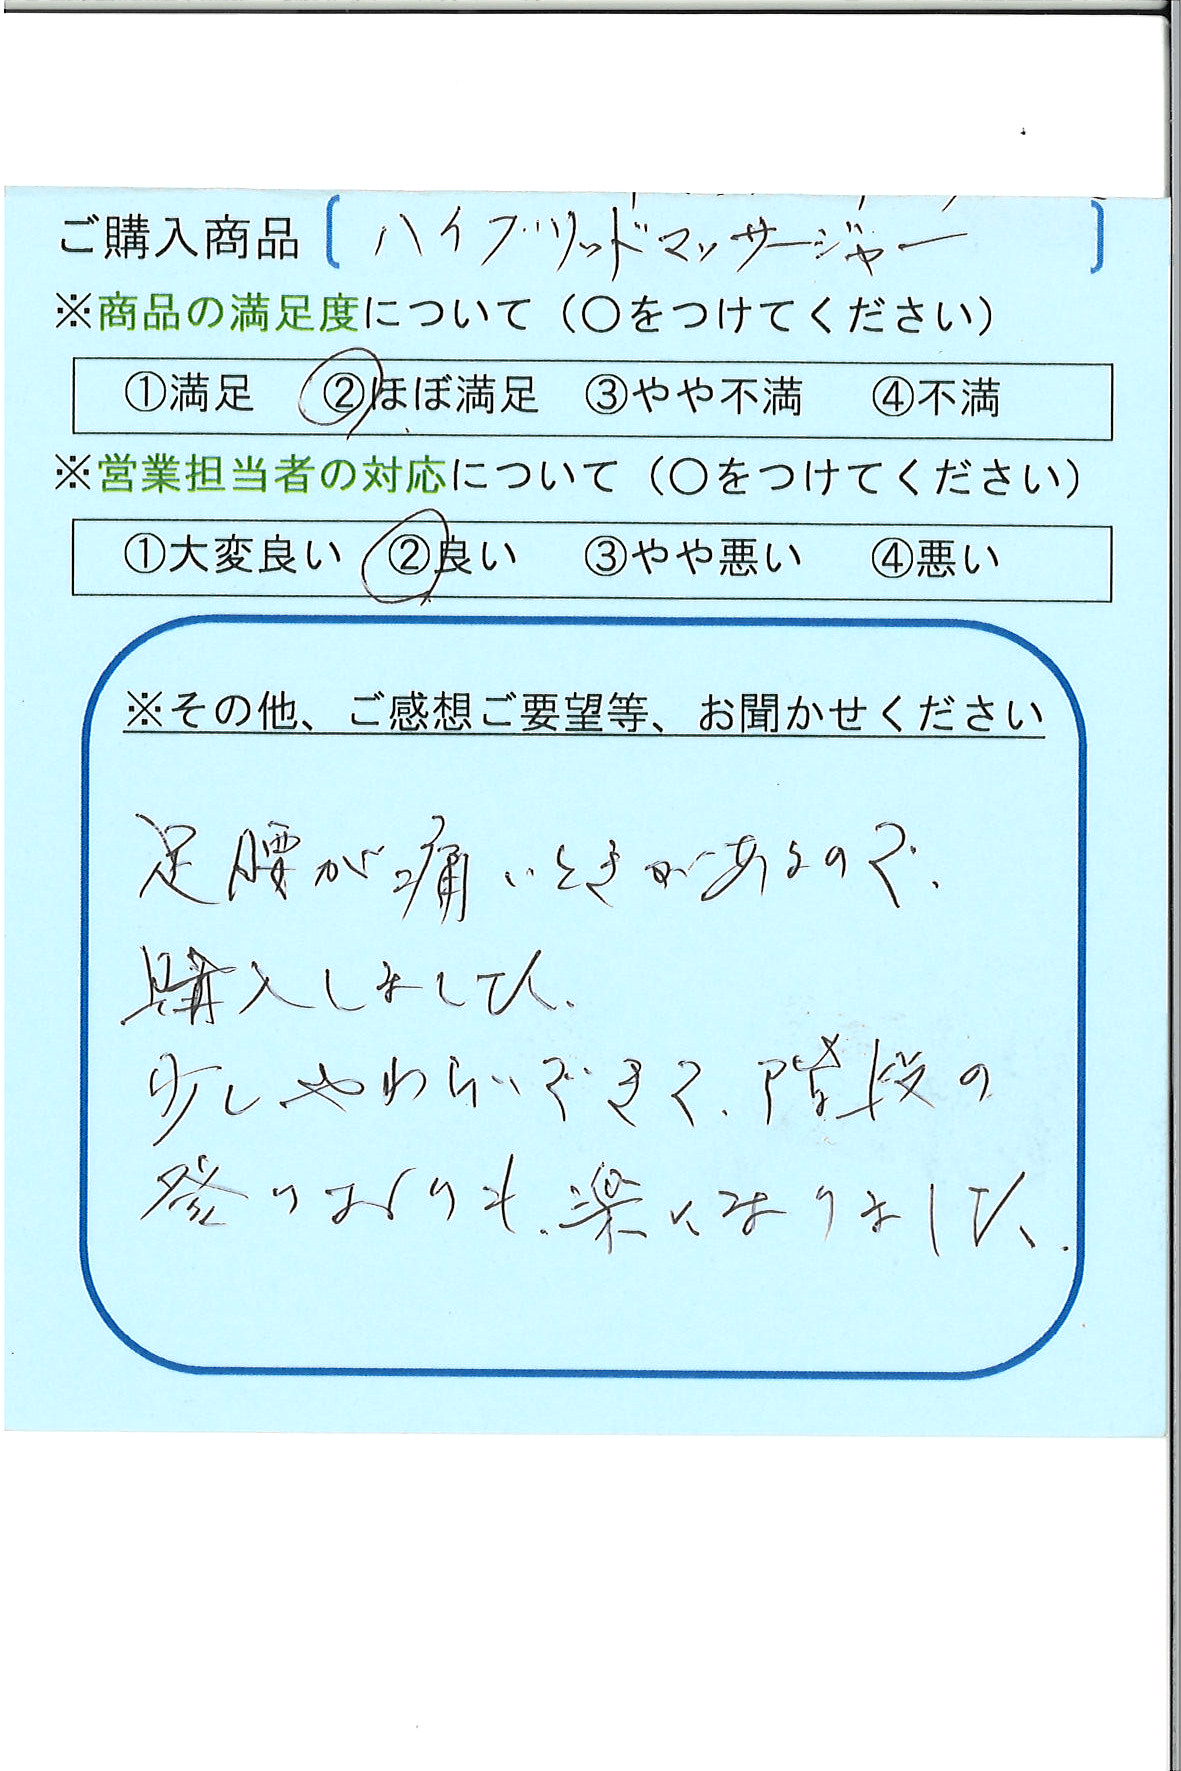 ご購入商品〔ハイブリッドマッサージャー〕
※商品の満足度について（○をつけてください）
①満足 ②ほぼ満足 ③やや不満 ④不満
※営業担当者の対応について（○をつけてください）
①大変良い ②良い ③やや悪い ④悪い
※その他、ご感想ご要望等、お聞かせください
足腰が痛いときがあるので、
購入しました。
少しやわらいできて、階段の
登りおりも、楽になりました。